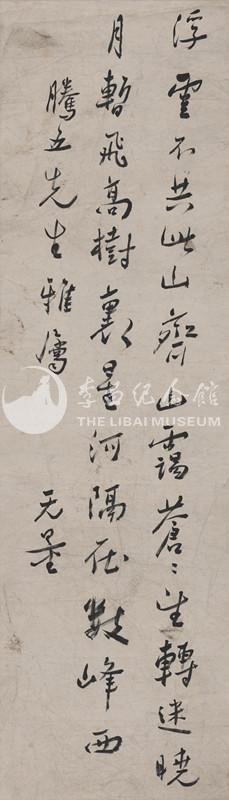 浮雲不共此山齊山靄蒼〻望轉迷曉
月暫飛高樹裏星河隔在數峰西
騰五先生雅屬 无量
李白纪念馆
THE LIBAI MUSEUM